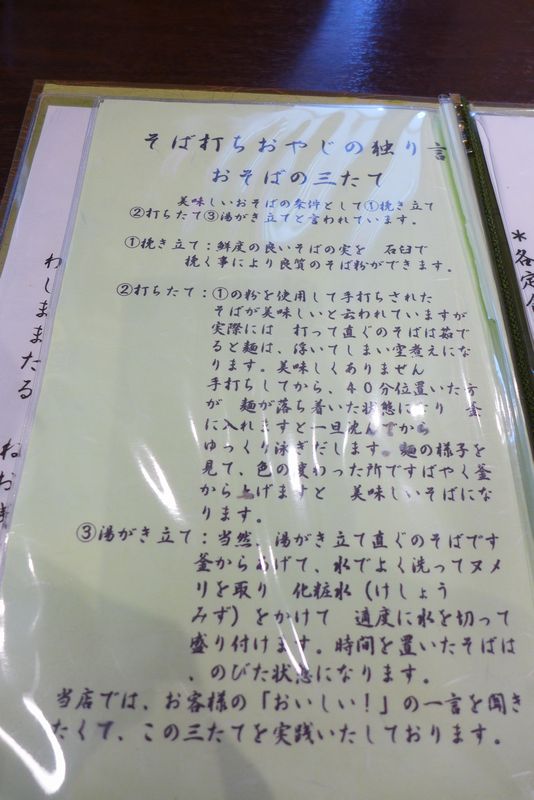 そば打ちおやじの独り言
おそばの三たて
美味しいおそばの条件として①挽き立て
②打ちたて③湯がき立てと言われています。
①挽き立て:鮮度の良いそばの実を 石臼で
挽く事により良質のそば粉ができます。
②打ちたて:①の粉を使用して手打ちされた
そばが美味しいと云われていますが
実際には 打って直ぐのそばは茹で
ると麺は、浮いてしまい空煮えにな
ります。美味しくありません
手打ちしてから、40分位置いた方
が 麺が落ち着いた状態になり 釜
に入れますと一旦沈んでから
ゆっくり泳ぎだします。麺の様子を
見て、色の変わった所ですばやく釜
から上げますと 美味しいそばにな
ります。
③湯がき立て:当然、湯がき立て直ぐのそばです
釜からあげて、水でよく洗ってヌメ
リを取り 化粧水(けしょう
みず)をかけて 適度に水を切って
盛り付けます。時間を置いたそばは
、のびた状態になります。
当店では、お客様の「おいしい!」の一言を聞き
たくて、この三たてを実践いたしております。
わしままたる
*各定